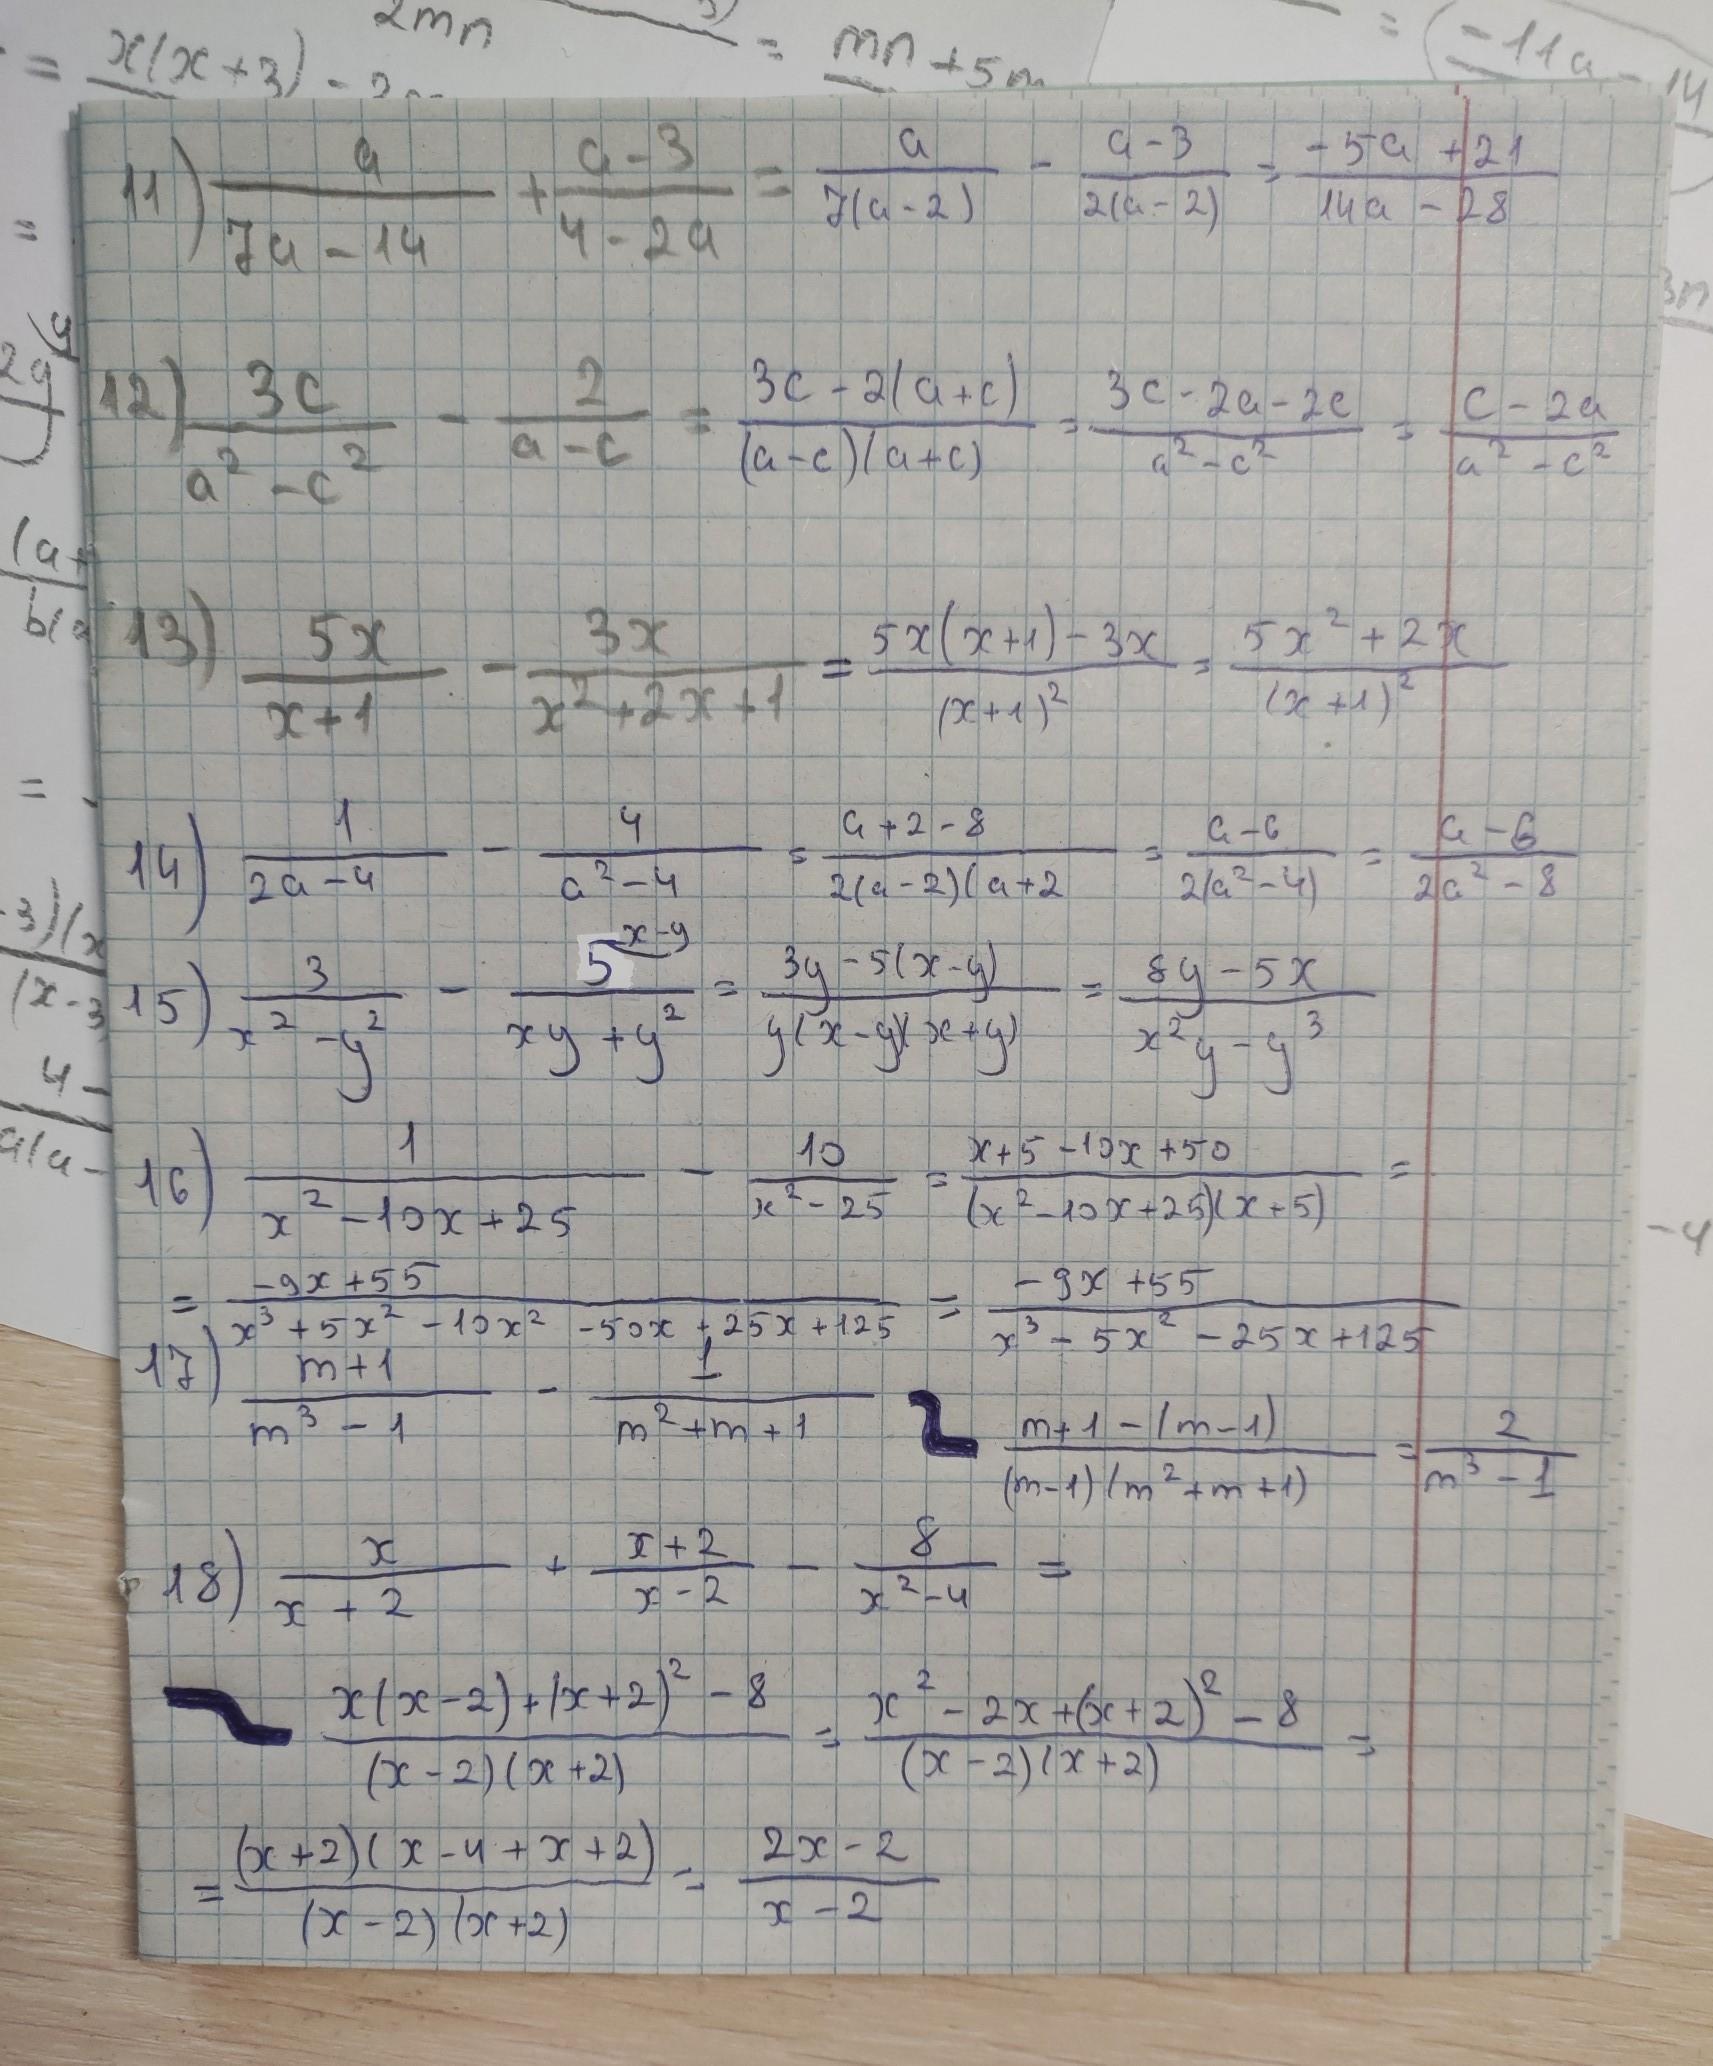 2mn
= x(x+3) - 3
= mn + 5m
= -11a - 14
11) a/(7a - 14) + (a - 3)/(4 - 2a) = a/(7(a - 2)) - (a - 3)/(2(a - 2)) = (-5a + 21)/(14a - 28)
12) 3c/(a² - c²) - 2/(a - c) = (3c - 2(a + c))/((a - c)(a + c)) = (3c - 2a - 2c)/(a² - c²) = (c - 2a)/(a² - c²)
13) 5x/(x + 1) - 3x/(x² + 2x + 1) = (5x(x + 1) - 3x)/(x + 1)² = (5x² + 2x)/(x + 1)²
14) 1/(2a - 4) - 4/(a² - 4) = (a + 2 - 8)/(2(a - 2)(a + 2 = (a - 6)/(2(a² - 4)) = (a - 6)/(2a² - 8)
x - y
15) 3/(x² - y²) - 5/(xy + y²) = (3y - 5(x - y))/(y(x - y)(x + y)) = (8y - 5x)/(x²y - y³)
16) 1/(x² - 10x + 25) - 10/(x² - 25) = (x + 5 - 10x + 50)/((x² - 10x + 25)(x + 5)) =
= (-9x + 55)/(x³ + 5x² - 10x² - 50x + 25x + 125) = (-9x + 55)/(x³ - 5x² - 25x + 125)
17) (m + 1)/(m³ - 1) - 1/(m² + m + 1) (m + 1 - (m - 1))/((m - 1)(m² + m + 1)) = 2/(m³ - 1)
18) x/(x + 2) + (x + 2)/(x - 2) - 8/(x² - 4) =
(x(x - 2) + (x + 2)² - 8)/((x - 2)(x + 2)) = (x² - 2x + (x + 2)² - 8)/((x - 2)(x + 2)) =
= ((x + 2)(x - 4 + x + 2))/((x - 2)(x + 2)) = (2x - 2)/(x - 2)